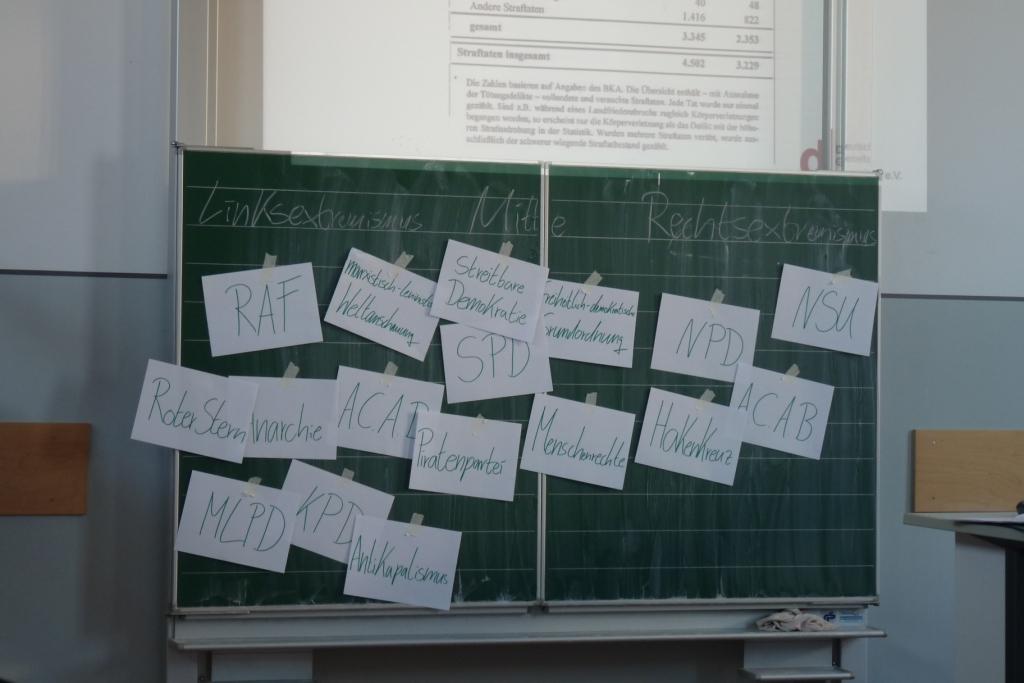 40 48
Andere Straftaten 1.416 822
gesamt 3.345 2.353
Straftaten insgesamt 4.502 3.229
Die Zahlen basieren auf Angaben des BKA. Die Übersicht enthält – mit Ausnahme
der Tötungsdelikte – vollendete und versuchte Straftaten. Jede Tat wurde nur einmal
gezählt. Sind z.B. während eines Landfriedensbruchs zugleich Körperverletzungen
begangen worden, so erscheint nur die Körperverletzung als das Delikt mit der höhe-
ren Strafandrohung in der Statistik. Wurden mehrere Straftaten verübt, wurde aus-
schließlich der schwerer wiegende Straftatbestand gezählt.
d
e.V.
Linksextremismus Mitte Rechtsextremismus
RAF
marxistisch-leninist
Weltanschauung
Streitbare
Demokratie
freiheitlich-demokratische
Grundordnung
NPD
NSU
SPD
Roter Stern
Anarchie
ACAB
Piratenpartei
Menschenrechte
Hakenkreuz
ACAB
MLPD
KPD
AntiKapalismus